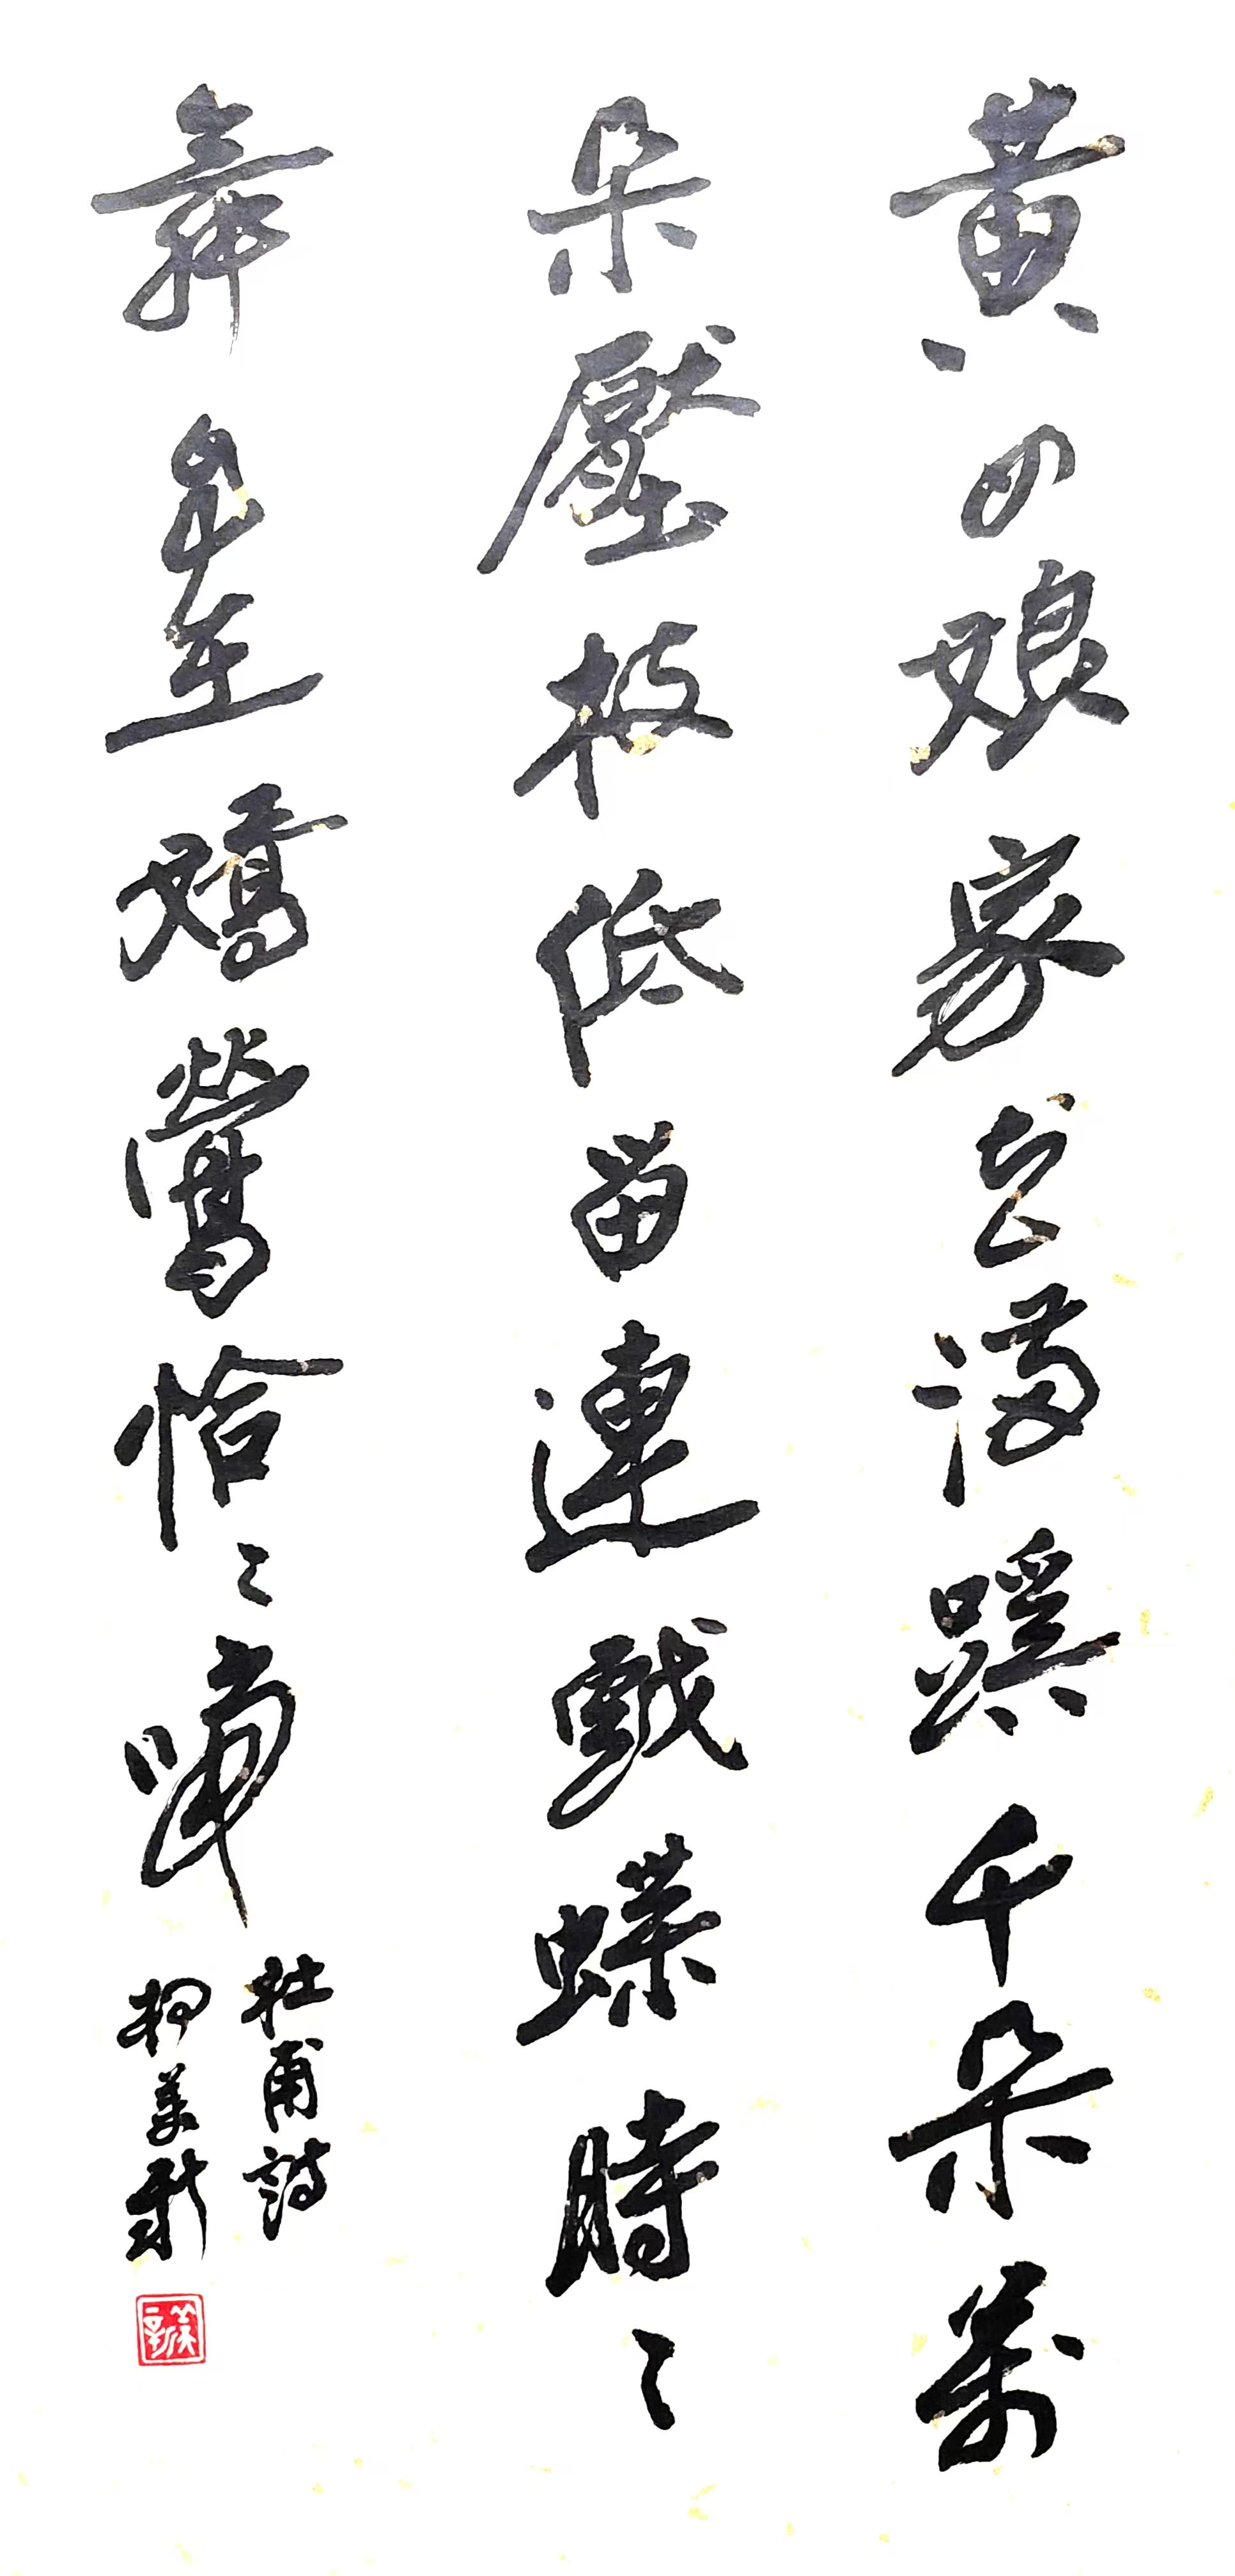 黃四娘家花滿蹊千朵萬
朵壓枝低留連戲蝶時〻
舞自在嬌鶯恰〻啼
杜甫詩
柯美新
美新